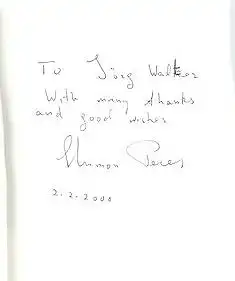 To Jörg Walter
With many thanks
and good wishes
Shimon Peres
2.2.2000